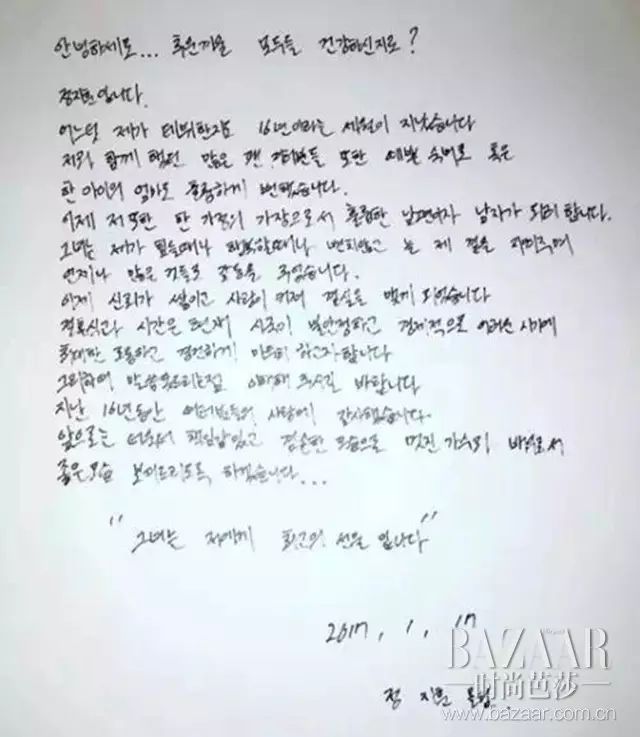 안녕하세요... 추운겨울 모두들 건강하신지요?
정지훈입니다.
어느덧 제가 데뷔한지도 16년이라는 세월이 지났습니다
저와 함께 했던 많은 팬 여러분들 또한 예쁜 숙녀로 혹은
한 아이의 엄마로 훌륭하게 변했습니다.
이제 저 또한 한 가정의 가장으로서 훌륭한 남편이자 남자가 되려 합니다.
그녀는 제가 힘들때나 행복할때나 변치않고 늘 제 곁을 지켜주며
언제나 많은 것들로 감동을 주었습니다.
이제 신뢰가 쌓이고 사랑이 커져 결실을 맺게 되었습니다
결혼식과 시간은 현재 시국이 불안정하고 경제적으로 어려운 시기에
최대한 조용하고 경건하게 마무리 하고자합니다
그리하여 말씀못드리는점 이해해 주시길 바랍니다
지난 16년동안 여러분들의 사랑에 감사했습니다.
앞으로는 더욱더 책임감있고 겸손한 모습으로 멋진 가수와 배우로서
좋은모습 보여드리도록 하겠습니다...
"그녀는 저에게 최고의 선물 입니다"
2017. 1. 17
정 지훈 올림.
BAZAAR
时尚芭莎
www.bazaar.com.cn